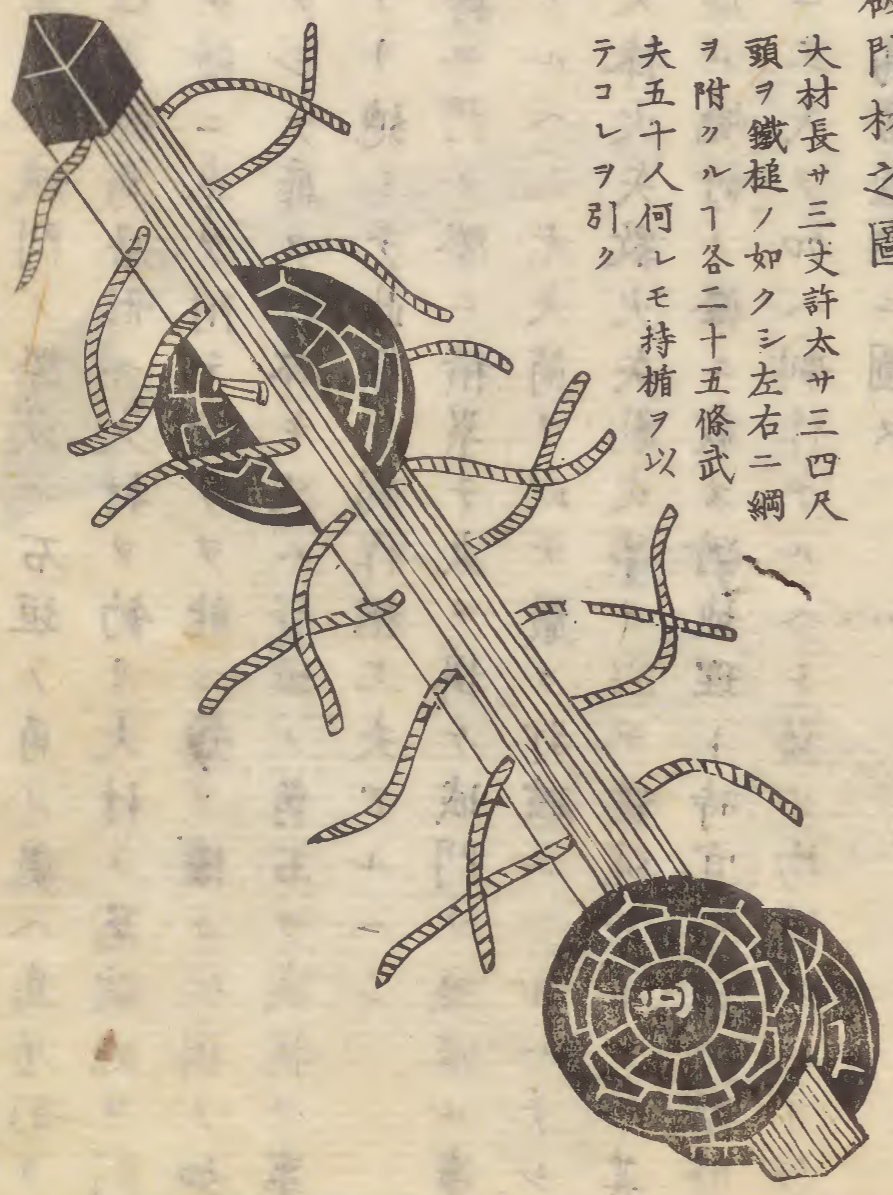 破門材之圖
大材長サ三丈許太サ三四尺
頭ヲ鐵槌ノ如クシ左右ニ綱
ヲ附クルヿ各二十五條武
夫五十人何レモ持楯ヲ以
テコレヲ引ク